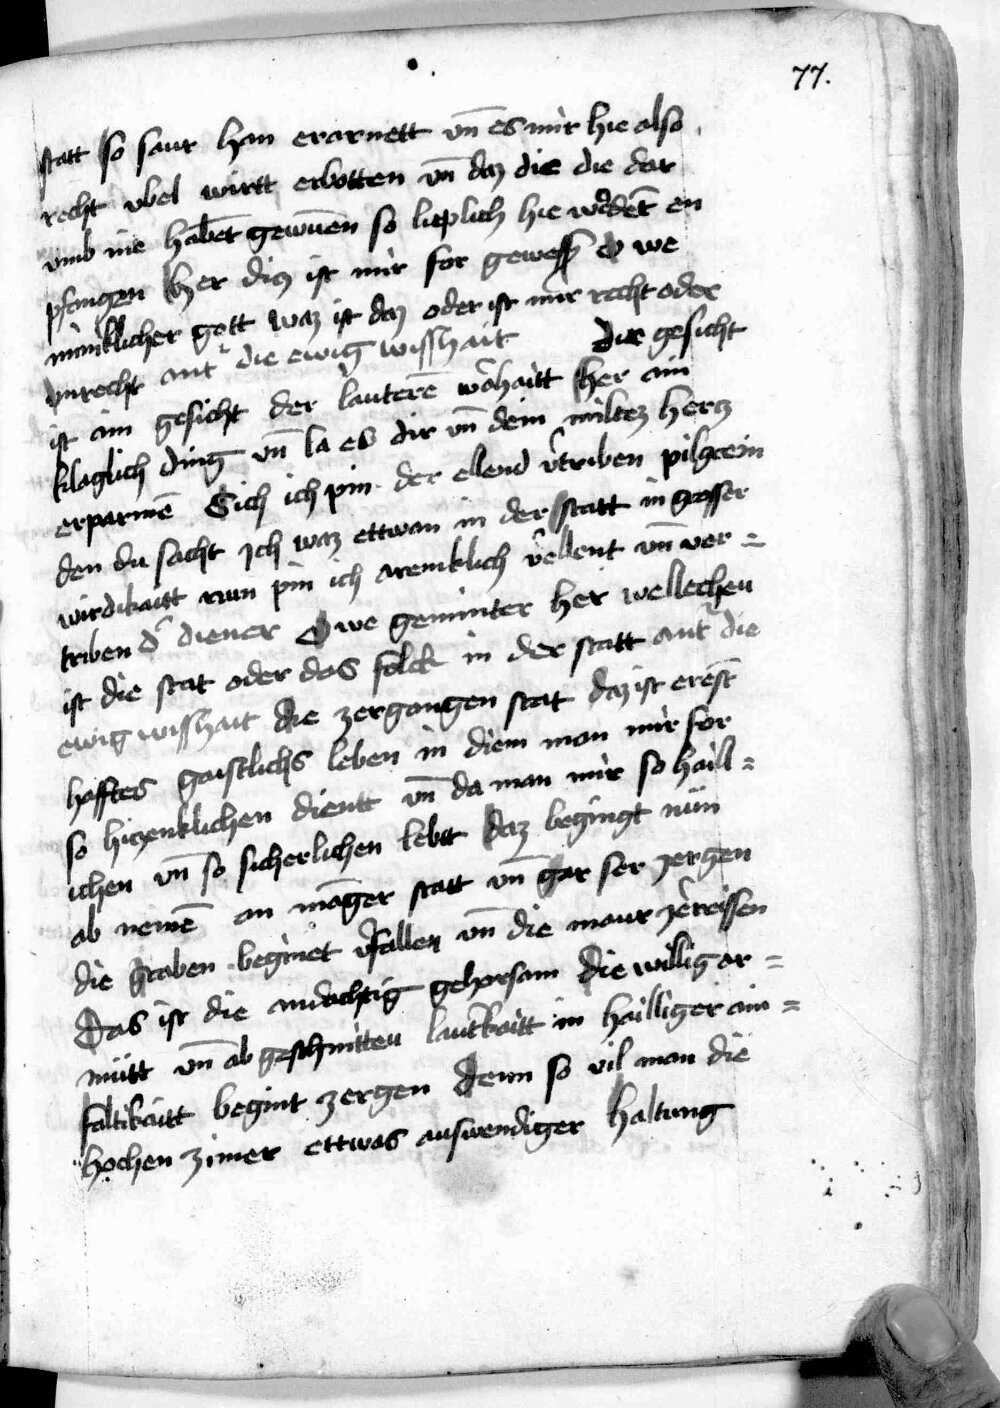 77.
statt so saur han erarnett vn̄ es mir hie also
recht vbel wirtt erbotten vn̄ daz die die dar
vmb nie habēt gewūen so lieplich hie wͤdēt en
pfangen her diz ist mir for gewessen O we
miniklicher gott waz ist daz oder ist mir recht oder
vnrecht antͬ die ewig wisshait die gesicht
ist ain gesicht der lauterē wôhaitt her ain
klaglich ding vn̄ la es dir vn̄ dein miltez hercz
erparmē Sich ich pin der ellend v̂triben pilgrein
den du sacht Ich waz ettwan in der statt in grosser
wirdikaitt nun pin ich armklich v̂ellent vn̄ ver=
triben d̂ diener O we geminter her wellecheu
ist die stat oder das folck in der statt antͬ die
ewig wisshait die zergangen stat daz ist ērest
hafftes gaistlichs leben in diem man mir for
so hiczenklichen dientt vn̄ da man mir so haill=
ichen vn̄ so sicherlichen lebtt daz begingt nün
ab nemē an māger statt vn̄ gar ser zergen
die graben beginet v̂fallen vn̄ die maur zêreissen
Das ist die andachtig gehorsam die willig ar=
mütt vn̄ ab geschnitten lautkaitt in hailliger ain=
faltikaitt begint zergen denn so vil man die
hochen zimer ettwas auswendiger haltung